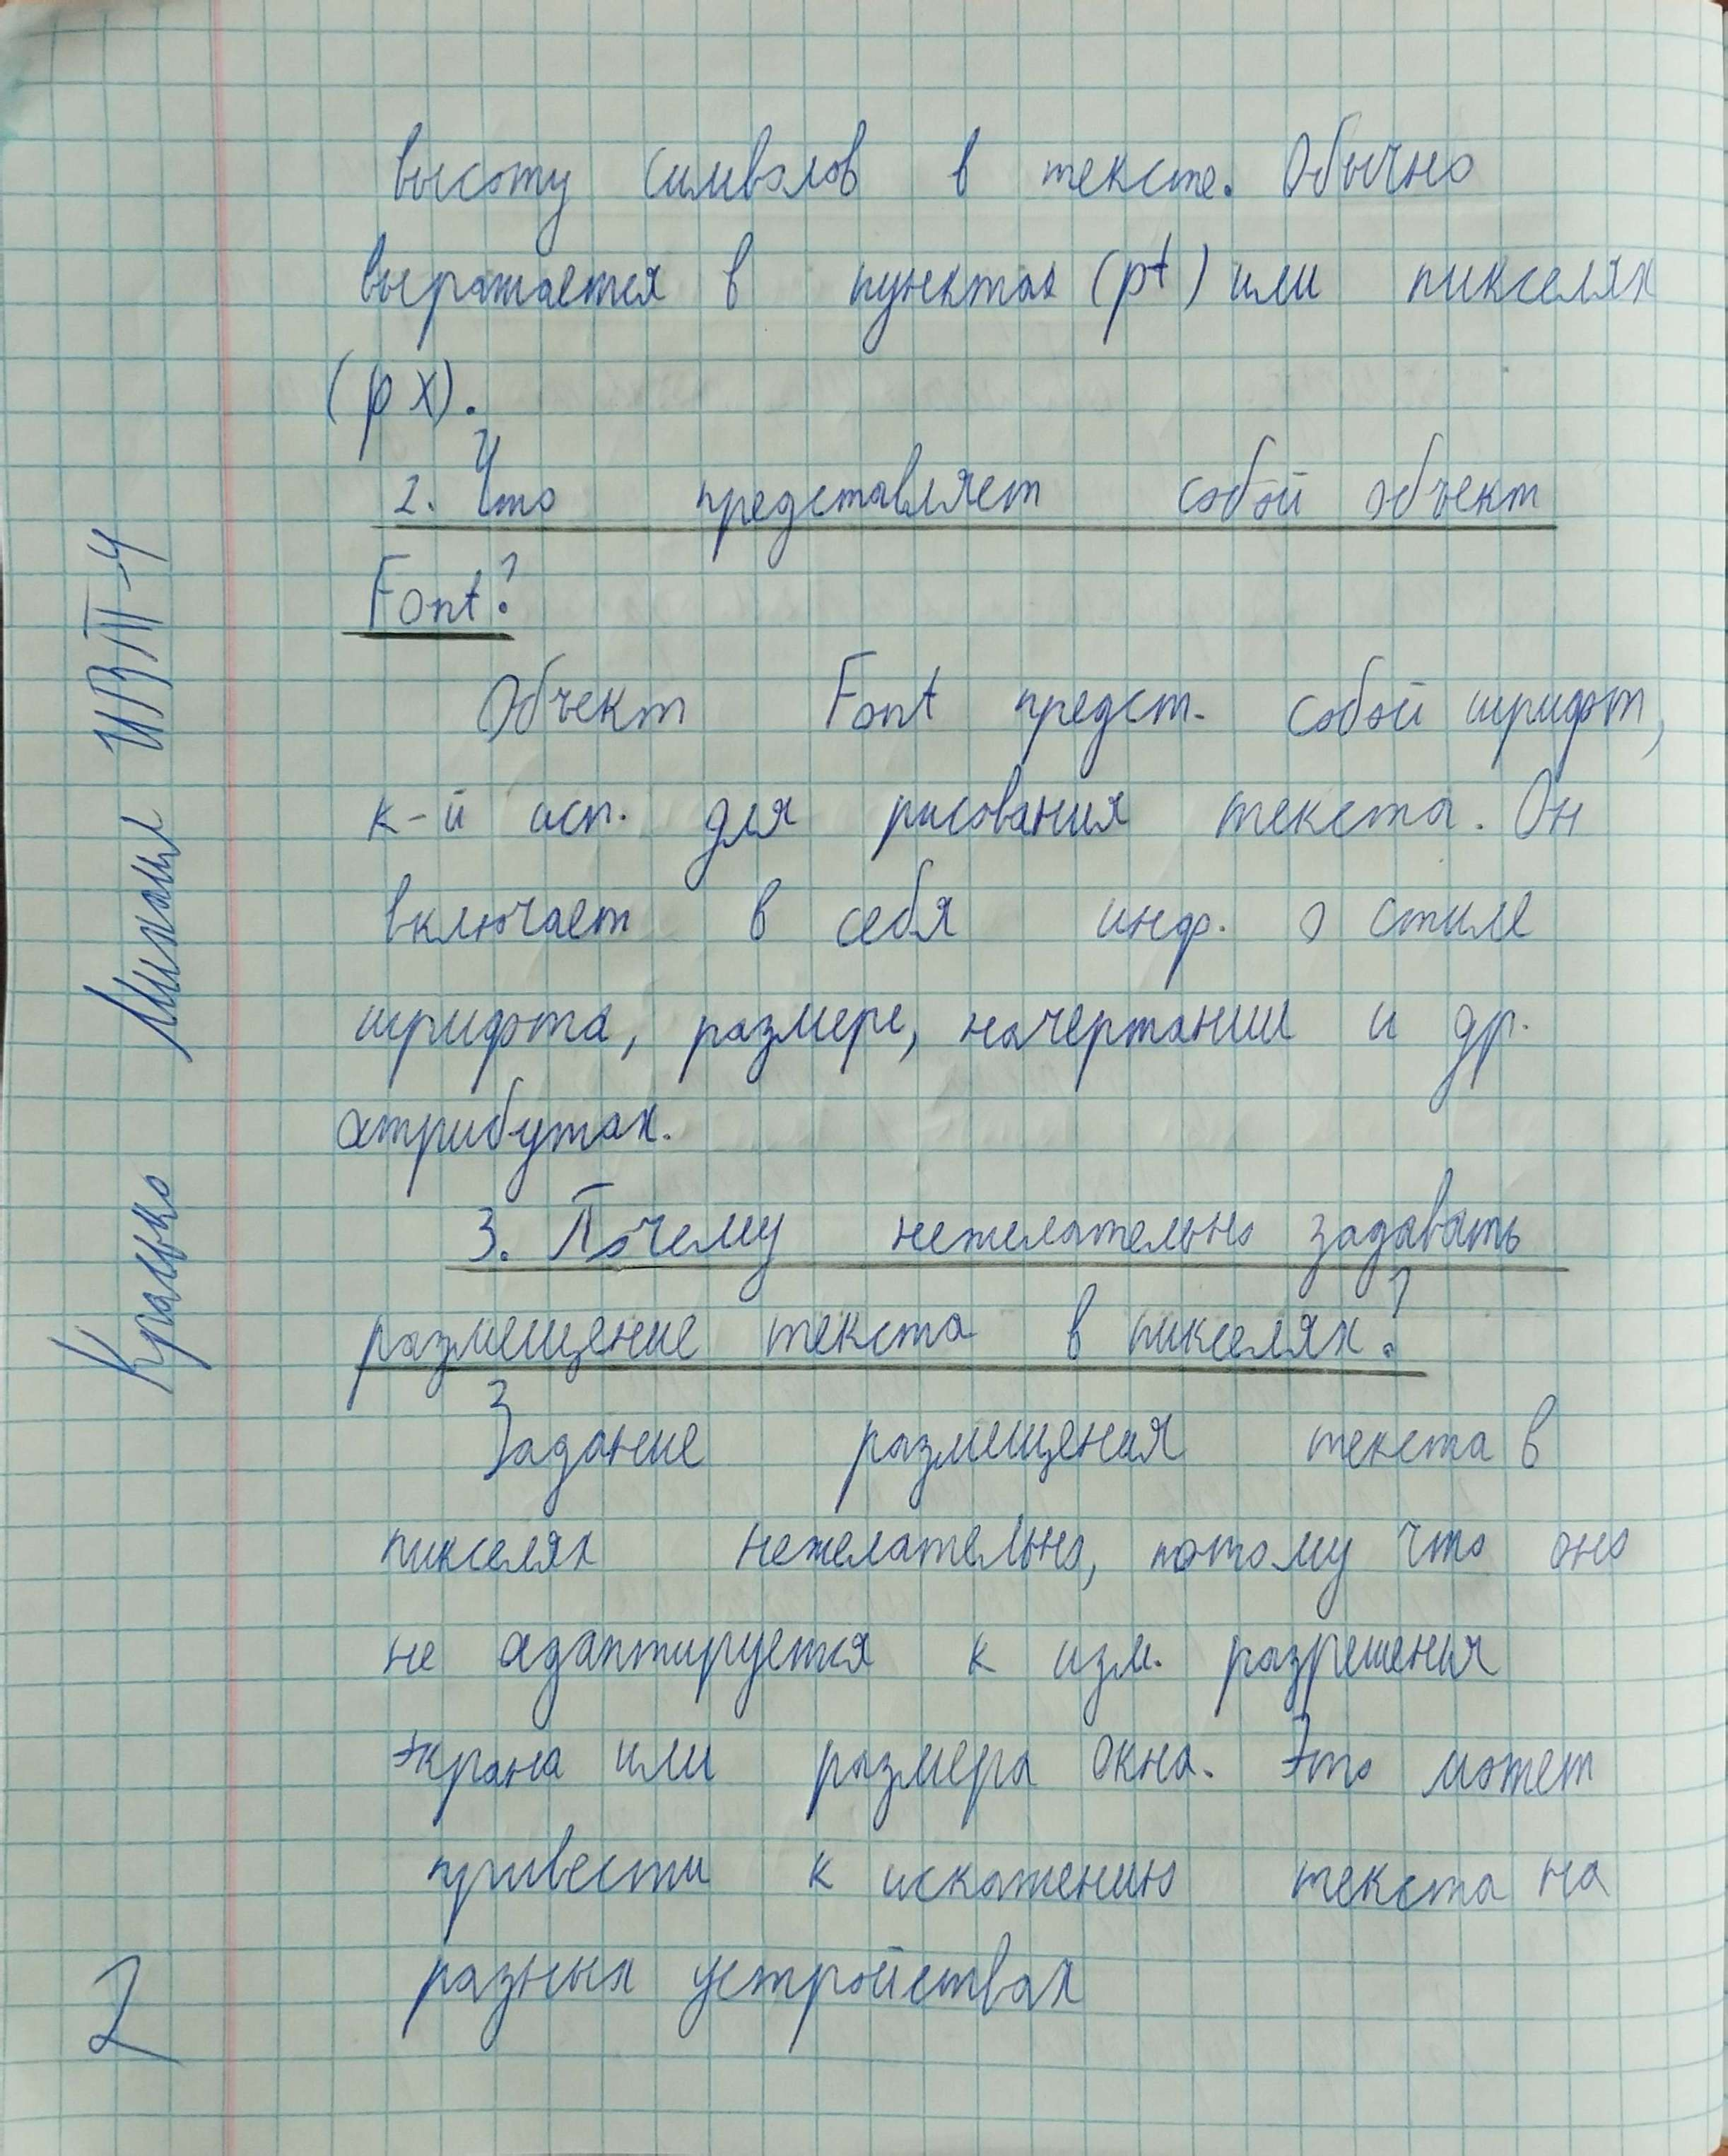 высоту символов в тексте. Обычно
выражается в пунктах (pt) или пикселях
(px).
2. Что представляет собой объект
Font?
Объект Font предст. собой шрифт,
к-й исп. для рисования текста. Он
включает в себя инф. о стиле
шрифта, размере, начертании и др.
атрибутах.
3. Почему нежелательно задавать
размещение текста в пикселях?
Задание размещения текста в
пикселях нежелательно, потому что оно
не адаптируется к изм. разрешения
экрана или размера окна. Это может
привести к искажению текста на
разных устройствах
Михаил ИВТ-4
2